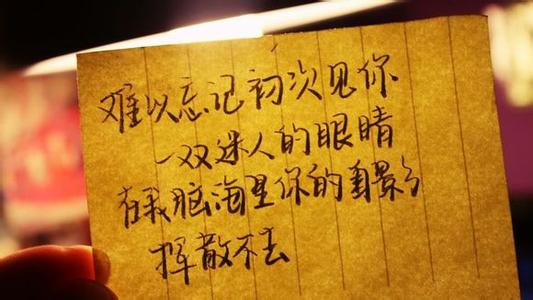 难以忘记初次见你
一双迷人的眼睛
在我脑海里你的身影
挥散不去